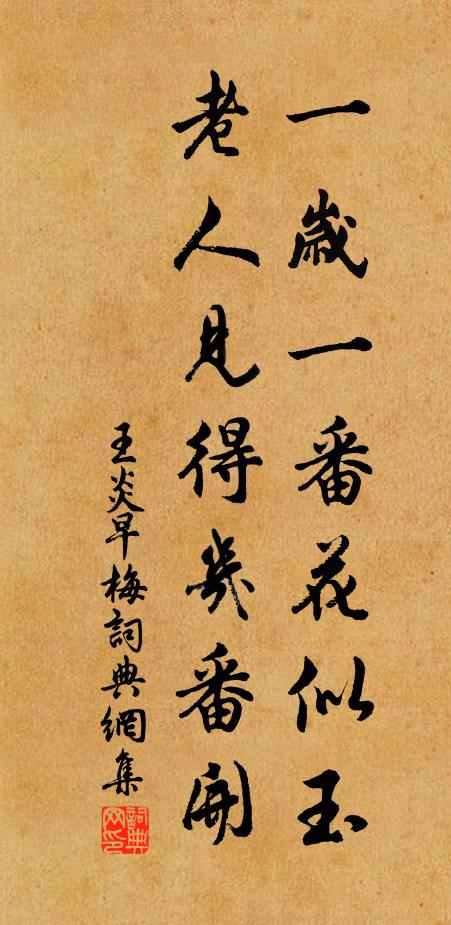 一歲一番花似玉
老人見得幾番開
王炎早梅詞典網集
詞典網印